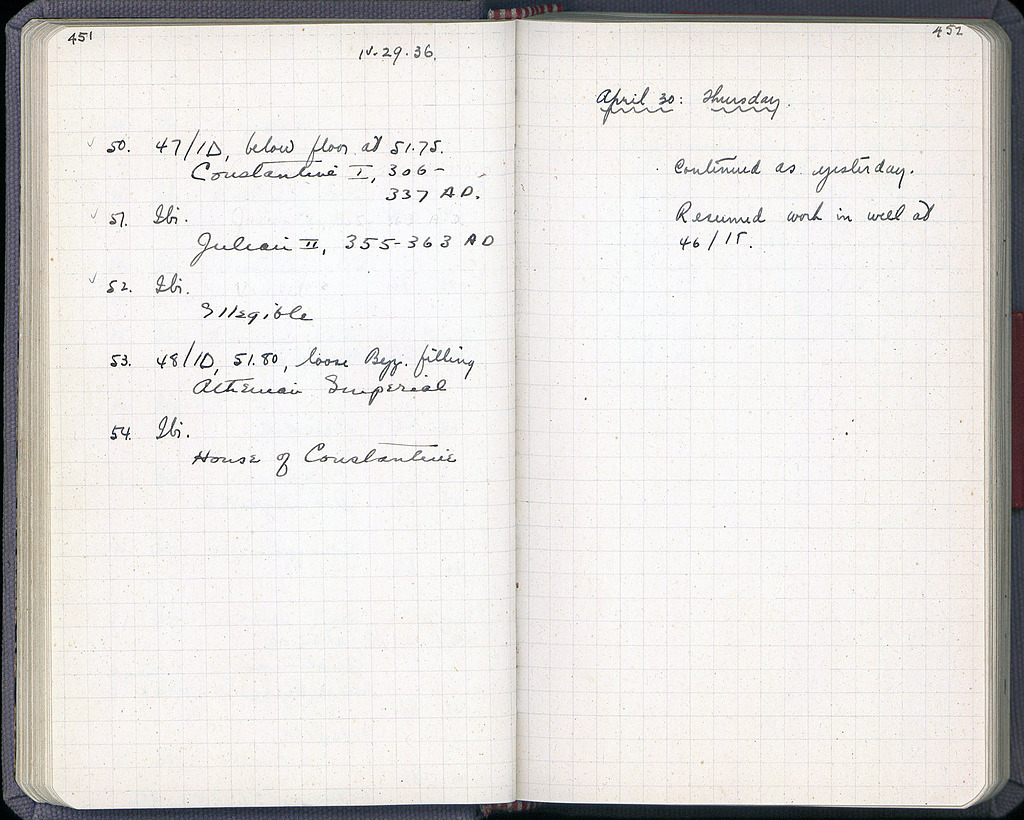 451
IV-29-36.
✓ 50. 47/ΙΔ, below floor at 51.75.
Constantine I, 306-
337 A.D.
✓ 51. Ibi.
Julian II, 355-363 AD
✓ 52. Ibi.
Illegible
53. 48/ΙΔ, 51.80, loose Byz. filling
Athenian Imperial
54. Ibi.
House of Constantine
452
April 30: Thursday.
Continued as yesterday.
Resumed work in well at
46/ΙΓ.